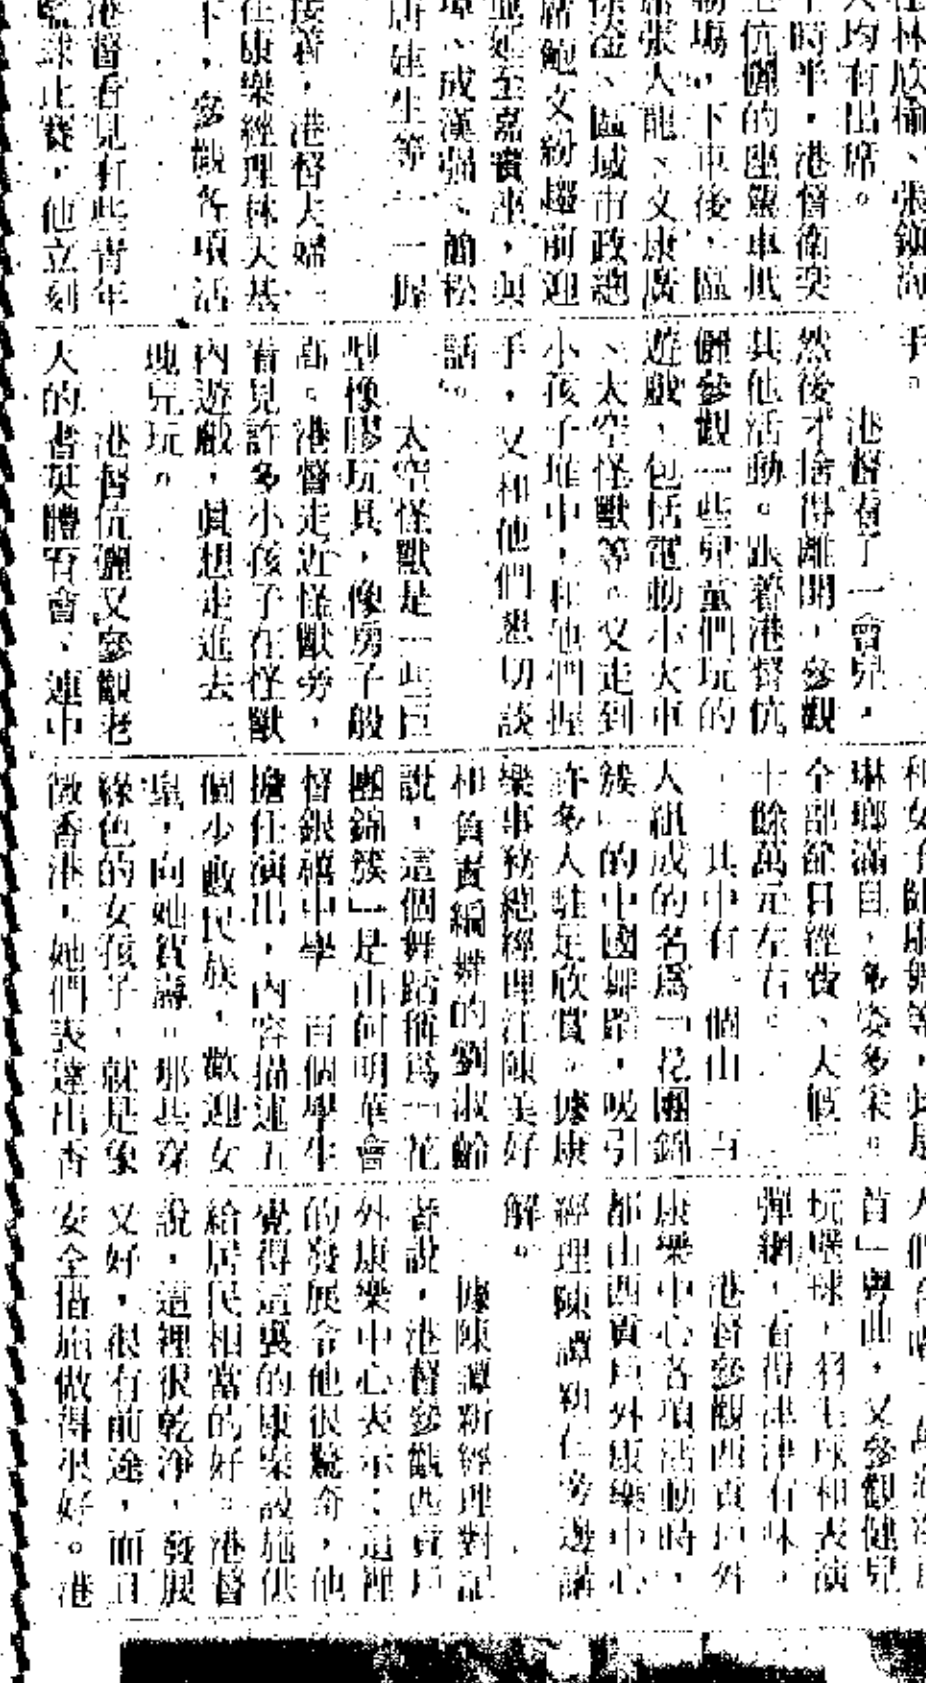 任林欣榆、張鎮海
人均有出席。
時半，港督衛奕
伉儷的座駕車抵
場，下車後，區
席張人龍、文康廣
金、區域市政總
席鮑文紛趨前迎
建至嘉賓座，與
、成漢強、簡松
唐建生等一一握
手。
港督看了一會兒，
然後才捨得離開，參觀
其他活動。跟着港督伉
儷參觀一些兒童們玩的
遊戲，包括電動小火車
、太空怪獸等。又走到
小孩子堆中，和他們握
手，又和他們懇切談
話。
太空怪獸是一些巨
型橡膠玩具，像房子般
高。港督走近怪獸旁，
看見許多小孩子在怪獸
內遊戲，眞想走進去一
塊兒玩。
港督伉儷又參觀老
人的耆英體育會、連中
接著，港督夫婦
任康樂經理林天基
下，參觀各項活
港督看見有些青年
籃球比賽，他立刻
琳瑯滿目，多姿多采。
全部節目經費、大概二
十餘萬元左右。
其中有一個由一百
人組成的名爲「花團錦
簇」的中國舞蹈，吸引
許多人駐足欣賞。據康
樂事務總經理江陳美好
和負責編舞的劉淑齡
說，這個舞蹈稱爲「花
團錦簇」是由何明華會
督銀禧中學一百個學生
擔任演出，內容描述五
個少數民族，歡迎女
皇，向她賀壽。那些穿
綠色的女孩子，就是象
徵香港，她們表達出香
首」粵曲，又參觀健兒
玩壁球、羽毛球和表演
彈網，看得津津有味。
港督參觀西貢戶外
康樂中心各項活動時，
都由西貢戶外康樂中心
經理陳譚新在旁邊講
解。
據陳譚新經理對記
者說，港督參觀西貢戶
外康樂中心表示：這裡
的發展令他很驚奇，他
覺得這裏的康樂設施供
給居民相當的好。港督
說，這裡很乾淨，發展
又好，很有前途，而且
安全措施做得很好。港